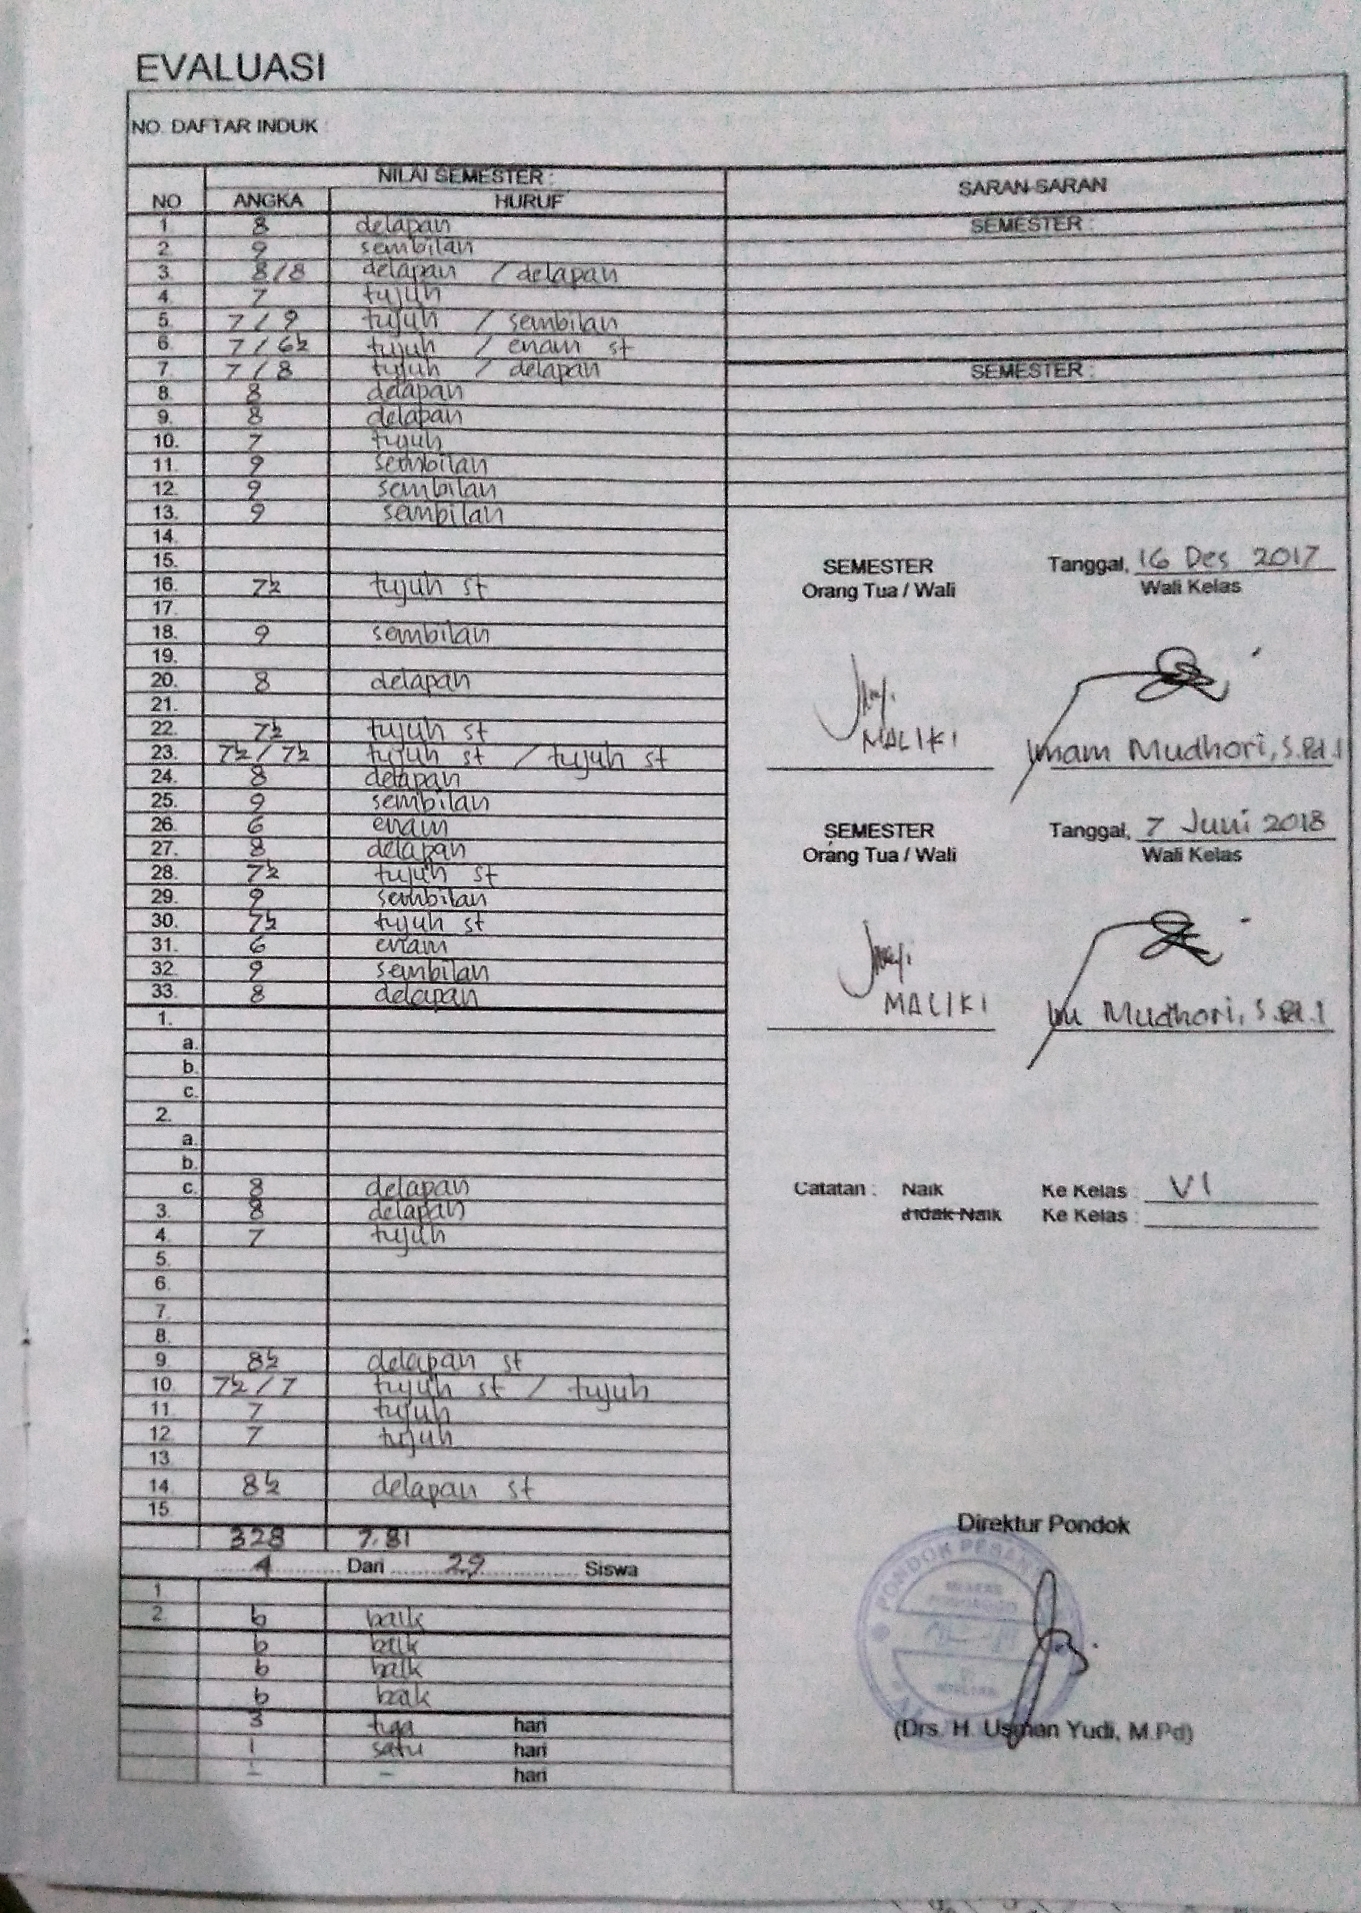 EVALUASI
NO. DAFTAR INDUK :
NILAI SEMESTER :
SARAN-SARAN
NO ANGKA HURUF
1. 8 delapan SEMESTER :
2. 9 sembilan
3. 8/8 delapan / delapan
4. 7 tujuh
5. 7/9 tujuh / sembilan
6. 7/6½ tujuh / enam st
7. 7/8 tujuh / delapan SEMESTER :
8. 8 delapan
9. 8 delapan
10. 7 tujuh
11. 9 sembilan
12. 9 sembilan
13. 9 sembilan
14.
15.
16. 7½ tujuh st
17.
18. 9 sembilan
19.
20. 8 delapan
21.
22. 7½ tujuh st
23. 7½/7½ tujuh st / tujuh st
24. 8 delapan
25. 9 sembilan
26. 6 enam
27. 8 delapan
28. 7½ tujuh st
29. 9 sembilan
30. 7½ tujuh st
31. 6 enam
32. 9 sembilan
33. 8 delapan
1.
a.
b.
c.
2.
a.
b.
c. 8 delapan
3. 8 delapan
4. 7 tujuh
5.
6.
7.
8.
9. 8½ delapan st
10. 7½/7 tujuh st / tujuh
11. 7 tujuh
12. 7 tujuh
13.
14. 8½ delapan st
15.
328 7.81
4 Dari 29 Siswa
1
2. b baik
b baik
b baik
b baik
3 tiga hari
1 satu hari
- - hari
SEMESTER Tanggal, 16 Des 2017
Orang Tua / Wali Wali Kelas
MALIKI Imam Mudhori, S.Pd.I
SEMESTER Tanggal, 7 Juni 2018
Orang Tua / Wali Wali Kelas
MALIKI Mudhori, S.Pd.I
Catatan : Naik Ke Kelas : VI
Tidak Naik Ke Kelas :
Direktur Pondok
PONDOK PESANT
(Drs. H. Usman Yudi, M.Pd)